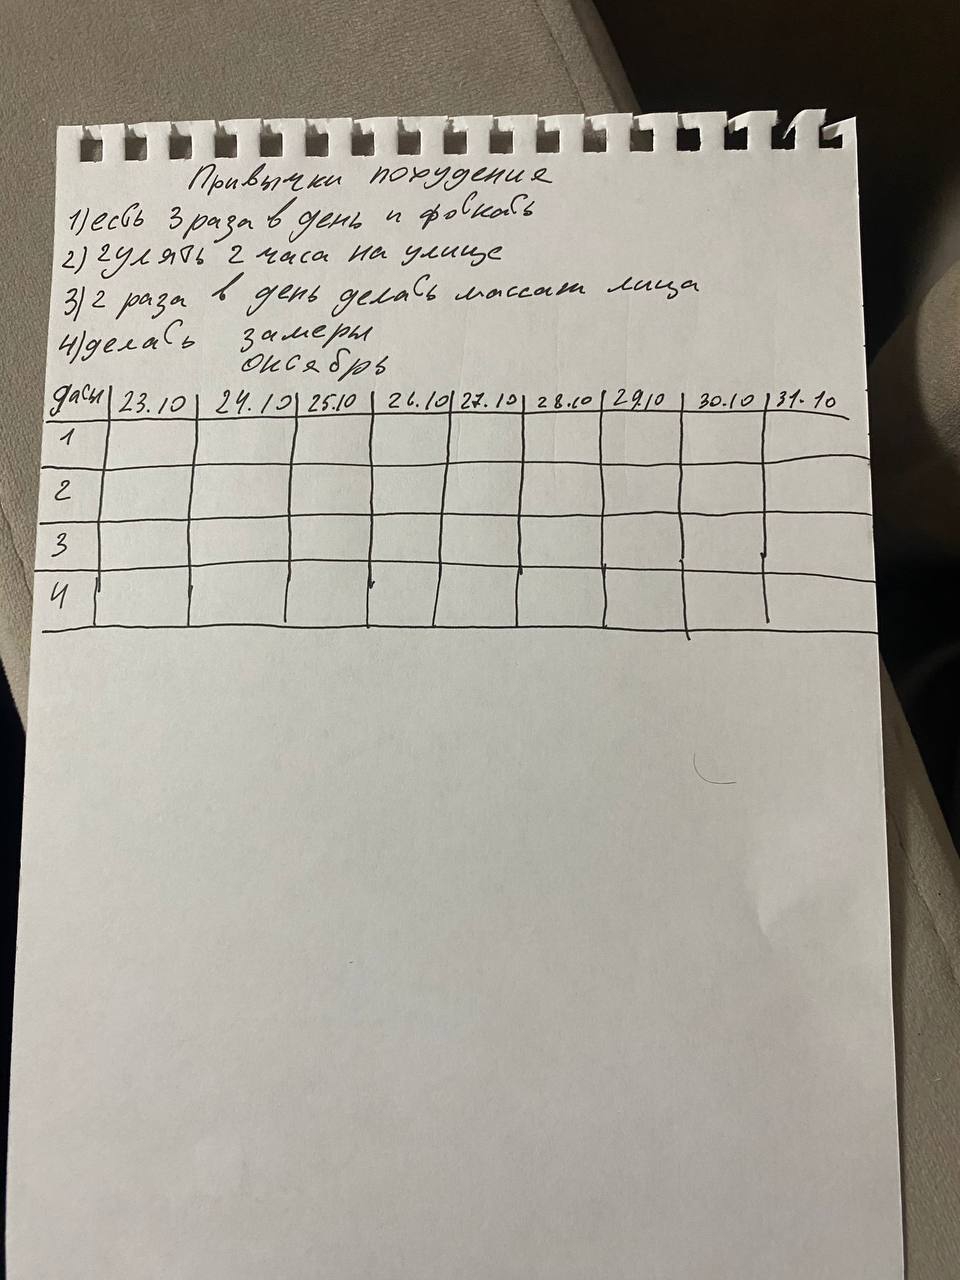 Привычки похудения
1) есть 3 раза в день и фоткать
2) гулять 2 часа на улице
3) 2 раза в день делать массаж лица
4) делать замеры
октябрь
даты 23.10 24.10 25.10 26.10 27.10 28.10 29.10 30.10 31.10
1
2
3
4